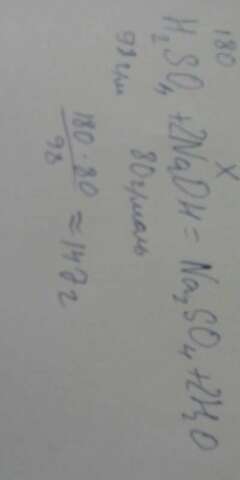 180 X
H₂SO₄ + 2NaOH = Na₂SO₄ + 2H₂O
98 г/м 80 г/моль
180 · 80 / 98 ≈ 147 г